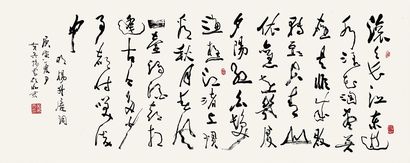 滚滚长江东逝
水浪花淘尽英
雄是非成败
转头空青山
依旧在几度
夕阳红白发
渔樵江渚上惯
看秋月春风
一壶浊酒喜相
逢古今多少
事都付笑谈
中
明杨升庵词